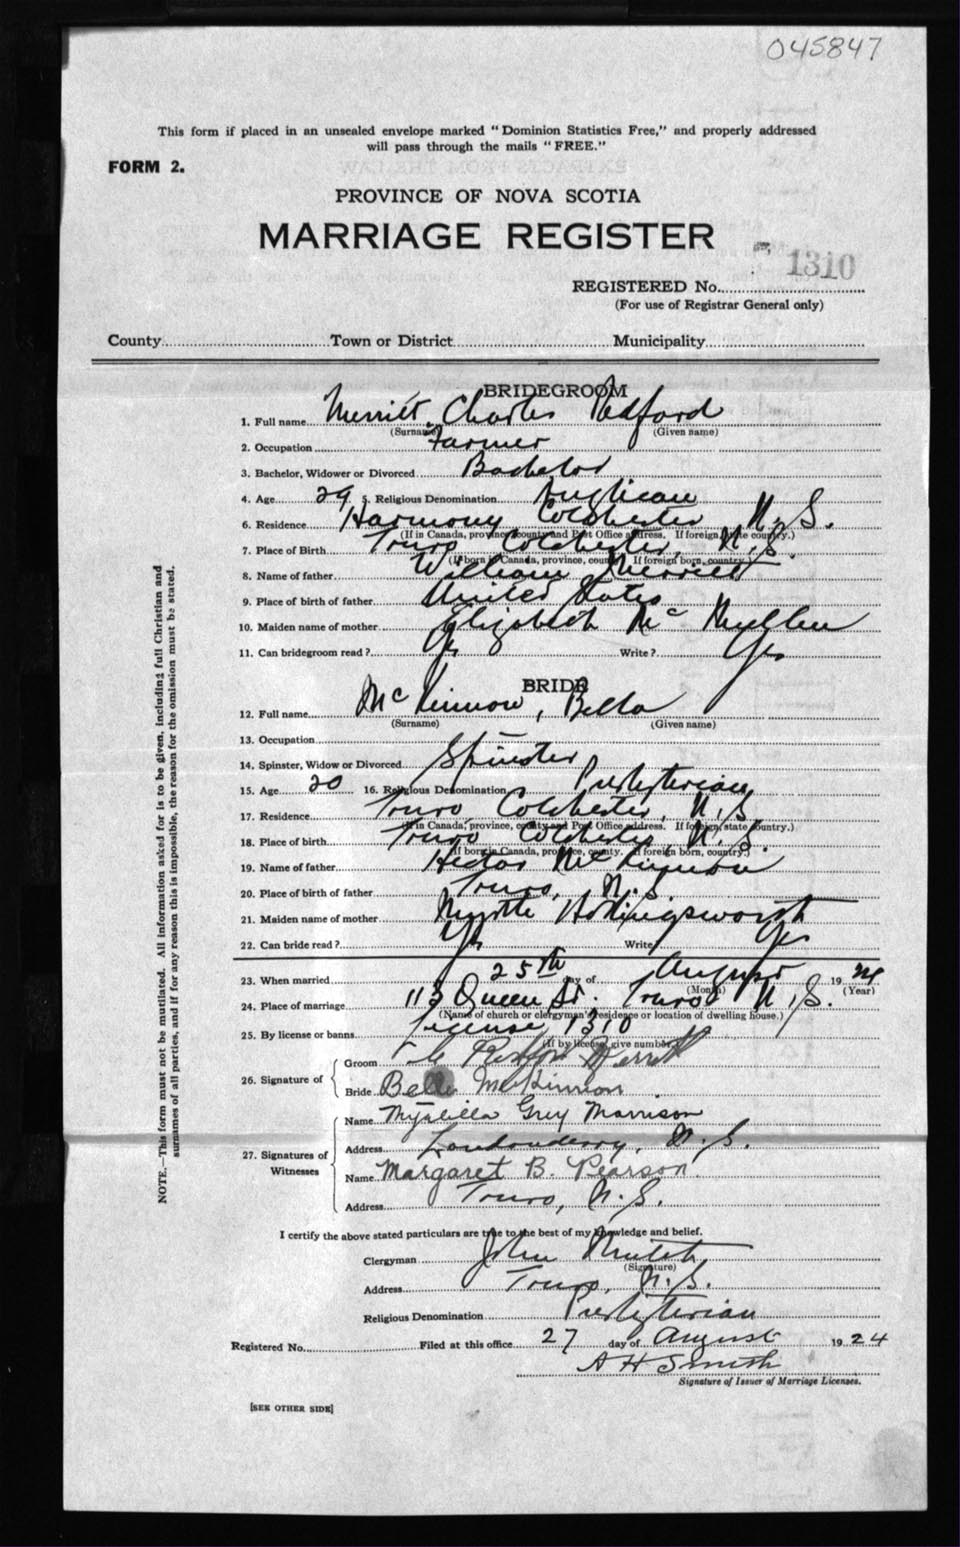 045847
This form if placed in an unsealed envelope marked "Dominion Statistics Free," and properly addressed
will pass through the mails "FREE."
FORM 2.
PROVINCE OF NOVA SCOTIA
MARRIAGE REGISTER
1310
REGISTERED No.
(For use of Registrar General only)
County Town or District Municipality
BRIDEGROOM
1. Full name Merritt, Charles Redford
(Surname) (Given name)
2. Occupation Farmer
3. Bachelor, Widower or Divorced Bachelor
4. Age 29 5. Religious Denomination Anglican
6. Residence Harmony Colchester N.S.
(If in Canada, province, county and Post Office address. If foreign, state country.)
7. Place of Birth Truro Colchester, N.S.
(If born in Canada, province, county. If foreign born, country.)
8. Name of father William Merritt
9. Place of birth of father United States
10. Maiden name of mother Elizabeth Mc
11. Can bridegroom read? Yes Write? Yes
BRIDE
12. Full name McKinnon, Bella
(Surname) (Given name)
13. Occupation
14. Spinster, Widow or Divorced Spinster
15. Age 20 16. Religious Denomination Presbyterian
17. Residence Truro, Colchester, N.S.
(If in Canada, province, county and Post Office address. If foreign, state country.)
18. Place of birth Truro Colchester, N.S.
(If born in Canada, province, county. If foreign born, country.)
19. Name of father Hector McKinnon
20. Place of birth of father Truro, N.S
21. Maiden name of mother Myrtle Hollingsworth
22. Can bride read? Yes Write Yes
23. When married 25th day of August 1924
(Month) (Year)
24. Place of marriage 113 Queen St. Truro N.S.
(Name of church or clergyman's residence or location of dwelling house.)
25. By license or banns License 1310
(If by license, give number)
26. Signature of
Groom Merritt
Bride Bella McKinnon
27. Signatures of Witnesses
Name Grey Morrison
Address Londonderry, N.S.
Name Margaret B. Pearson
Address Truro, N.S.
I certify the above stated particulars are true to the best of my knowledge and belief.
Clergyman John Mutch
(Signature)
Address Truro, N.S.
Religious Denomination Presbyterian
Registered No. Filed at this office 27 day of August 1924
A H Smith
Signature of Issuer of Marriage Licenses.
[SEE OTHER SIDE]
NOTE.—This form must not be mutilated. All information asked for is to be given, including full Christian and
surnames of all parties, and if for any reason this is impossible, the reason for the omission must be stated.